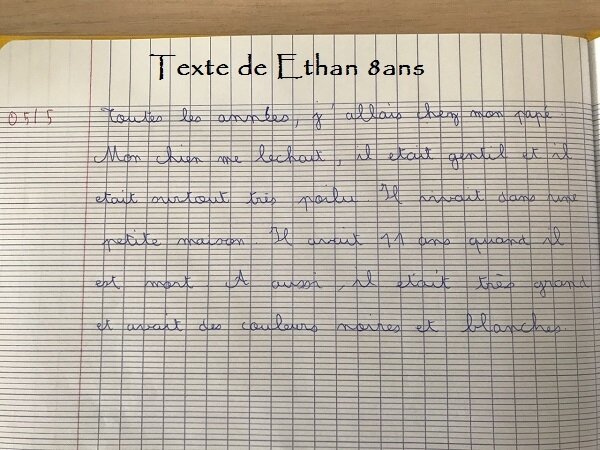 Texte de Ethan 8ans
05/5
Toutes les années, j'allais chez mon papé.
Mon chien me lechait, il etait gentil et il
etait surtout très poilu. Il vivait dans une
petite maison. Il avait 11 ans quand il
est mort. A aussi, il etait très grand
et avait des couleurs noires et blanches.